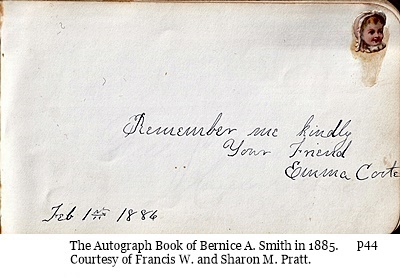 Remember me kindly
Your Friend
Emma
Feb 1st 1886
The Autograph Book of Bernice A. Smith in 1885. P44
Courtesy of Francis W. and Sharon M. Pratt.